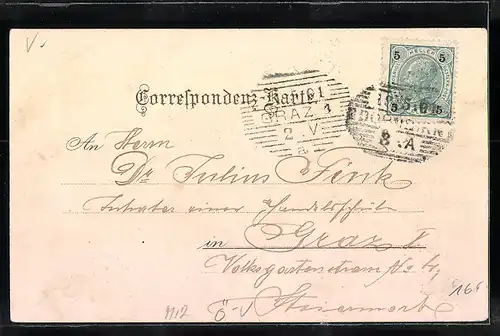 V.
5 HELLER 5
5 5
Correspondenz-Karte.
GRAZ 1
2. V
a
DORNBIRN
8 A
An Herrn
Dr Julius Fink
Inhaber einer Handelsschule
in Graz I
Volksgartenstrasse No
Steiermark
Ö-V